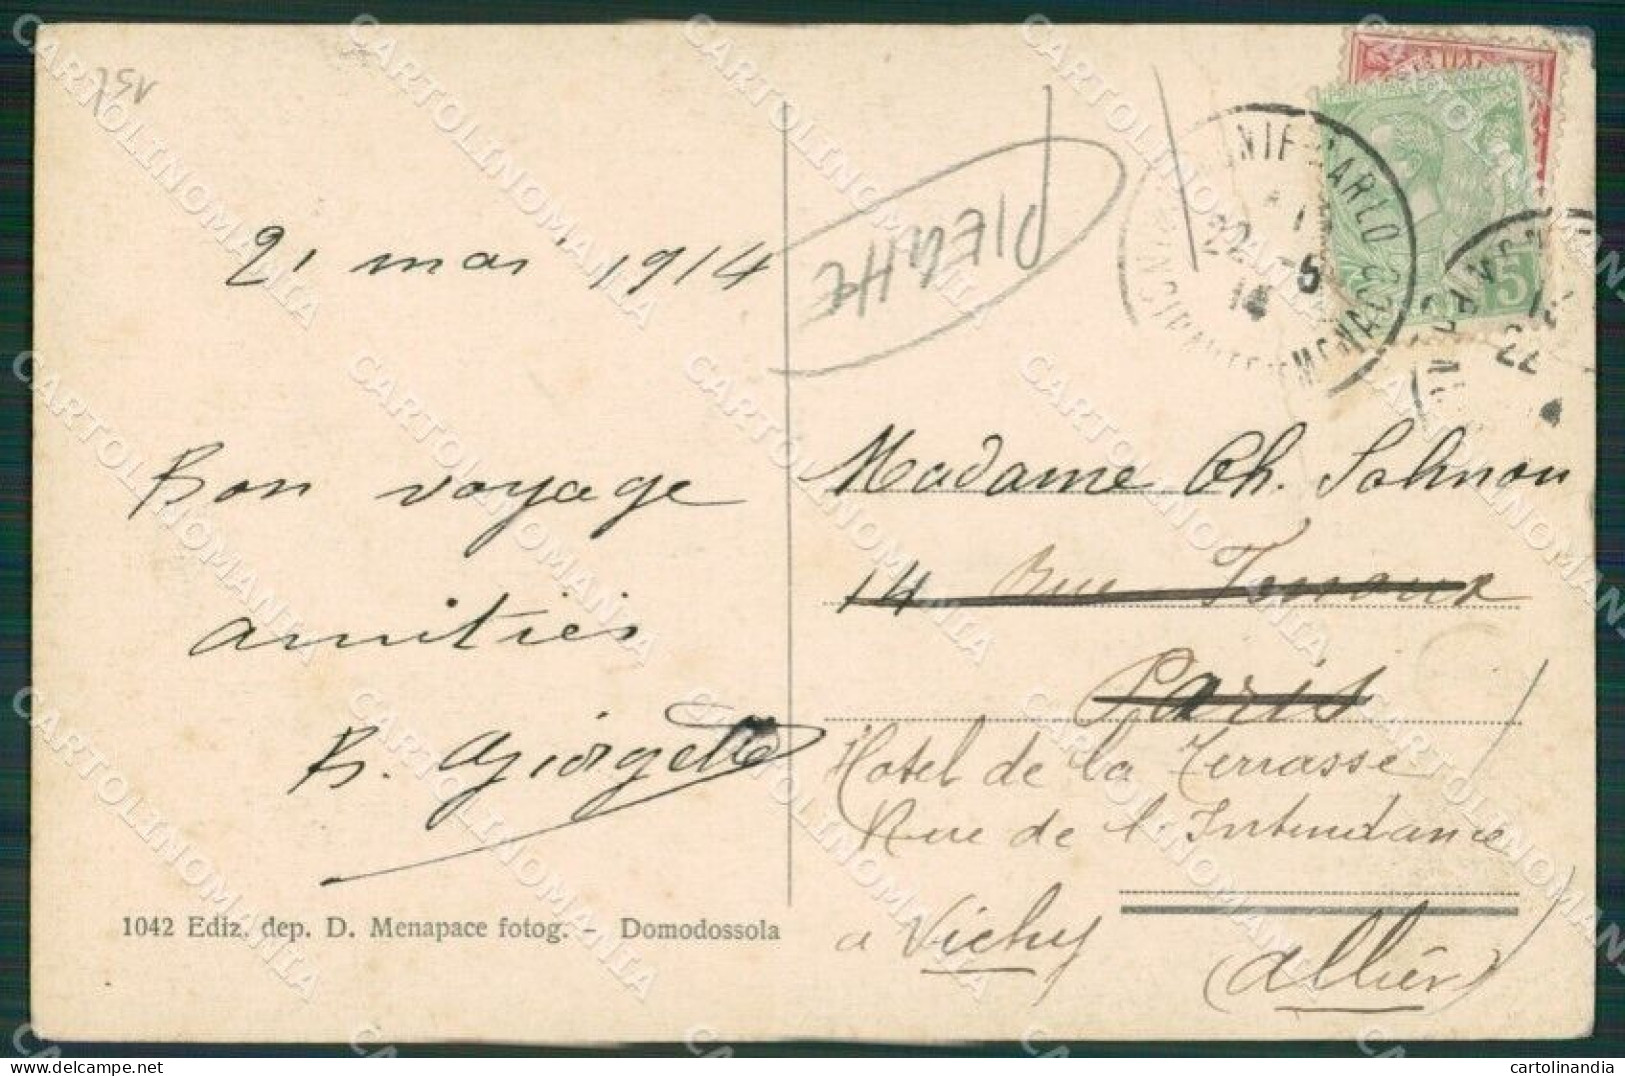 21 mai 1914
PIEGHE
Bon voyage
amitiés
B.
1042 Ediz. dep. D. Menapace fotog. - Domodossola
Madame Ch.
14 Rue
Paris
Hotel de la Terrasse
Rue de l'Intendance
a Vichy
(Allier)
MONTE-CARLO
22 -5
14
PRINCIPAUTÉ DE MONACO
5
22
CARTOLINOMANIA
cartolinandia